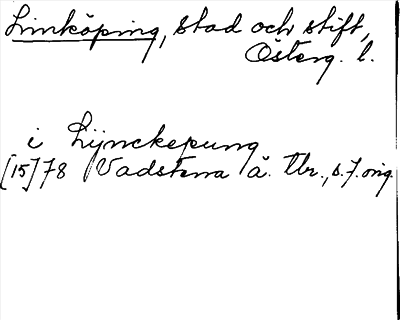 Linköping, stad och stift,
Österg. l.
i Lijnckepung
[15]78 Vadstena ä. tbr., s. 7. orig.